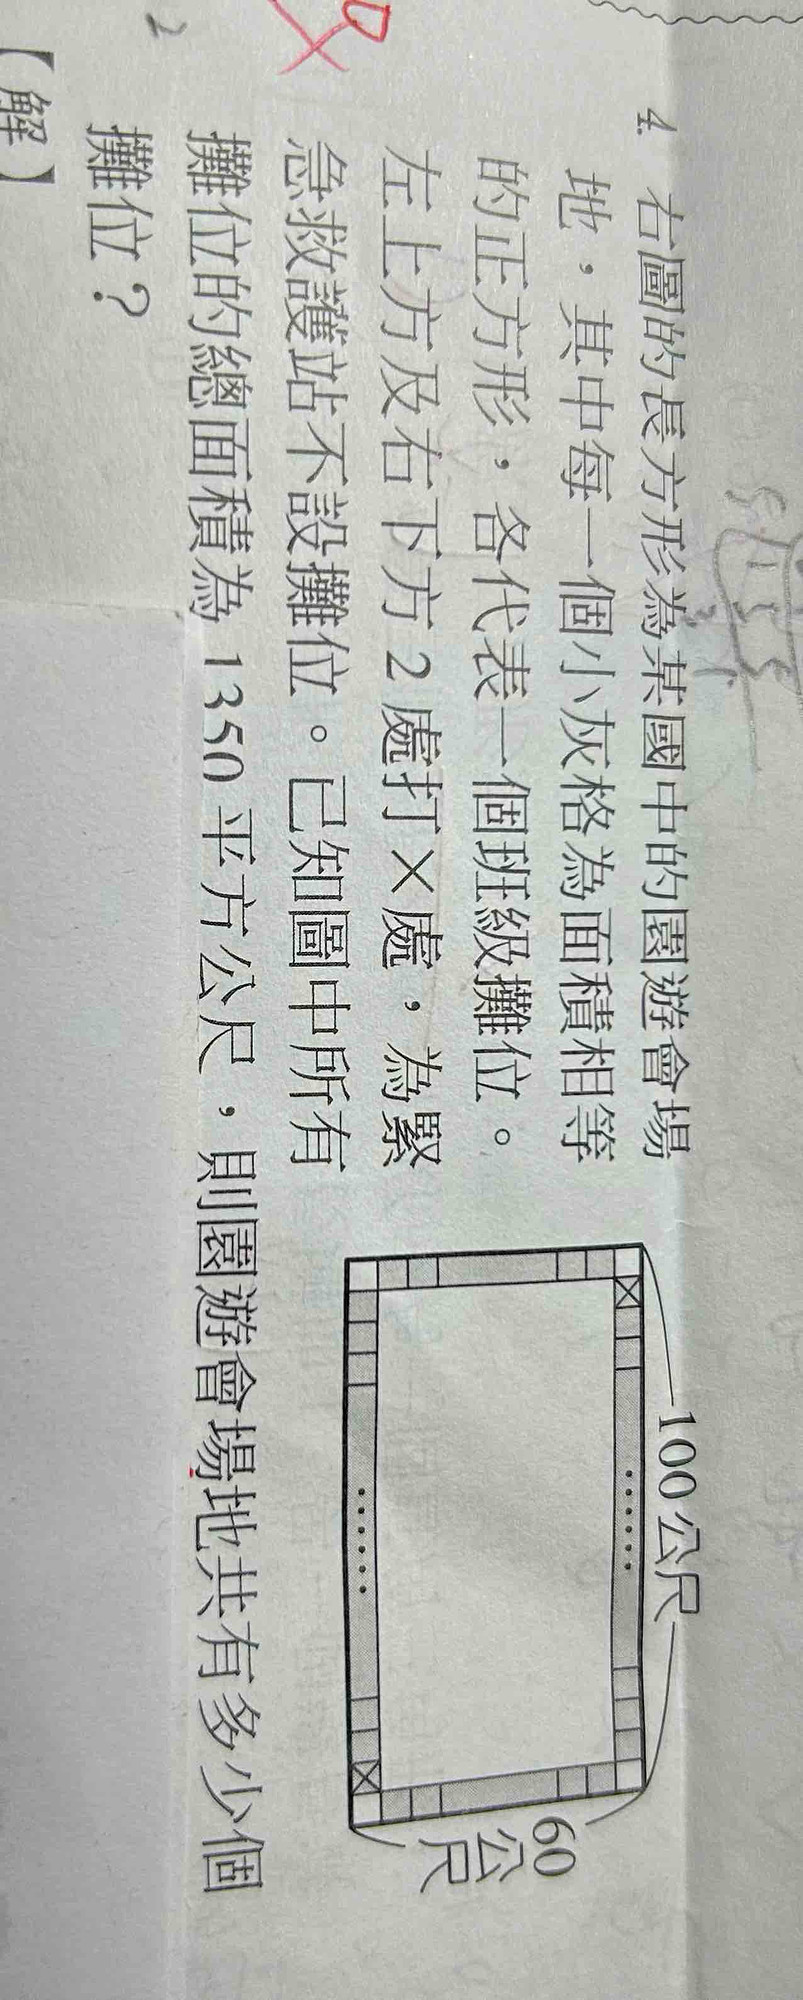 4. 右圖的長方形為某國中的園遊會場
地，其中每一個小灰格為面積相等
的正方形，各代表一個班級攤位。
左上方及右下方2處打×處，為緊
急救護站不設攤位。已知圖中所有
攤位的總面積為1350平方公尺，則園遊會場地共有多少個
攤位？
【解】
100公尺
60
公尺
2